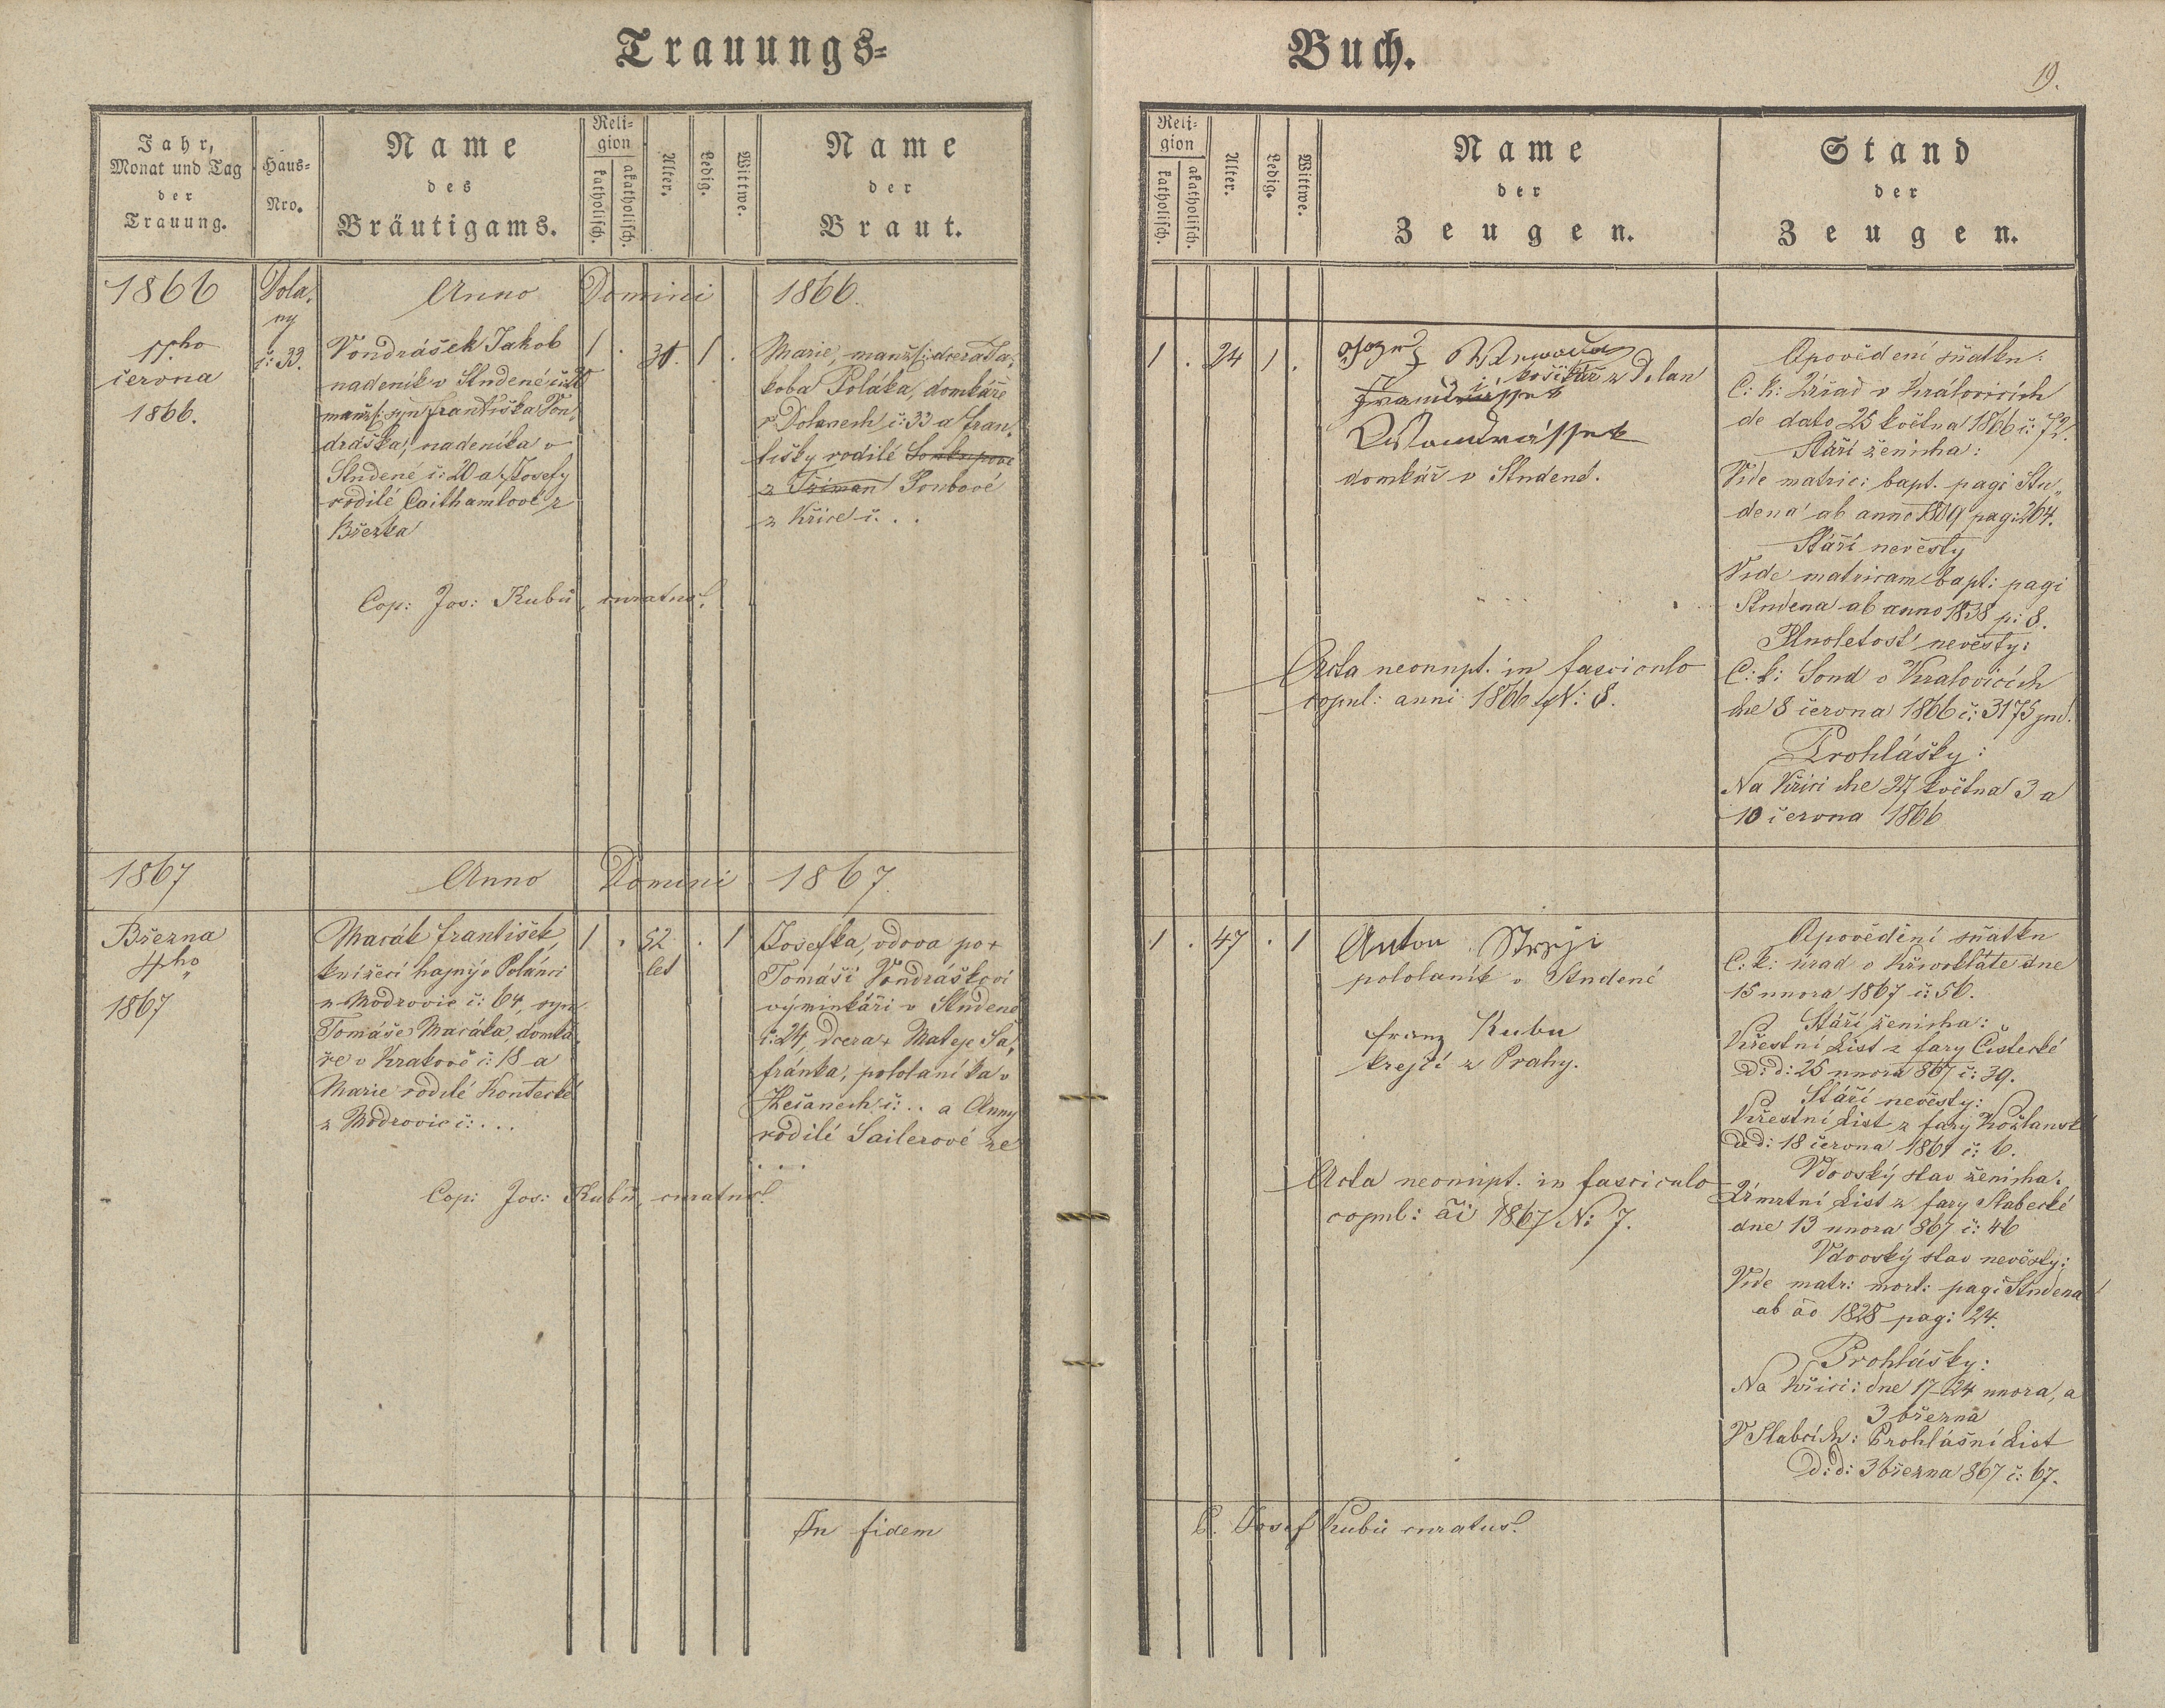 Trauungs=
Buch.
19.
Jahr,
Monat und Tag
der
Trauung.
Haus-
Nro.
Name
des
Bräutigams.
Reli-
gion
katholisch.
akatholisch.
Alter.
Ledig.
Wittwe.
Name
der
Braut.
1866
Dola,
ny
Anno Domini 1866.
11.ho
června
1866.
č: 33.
Vondrášek Jakob
nadeník v Studené č: 20
manžs: syn Františka Von,
dráška, nadeníka v
Studené č: 20 a Josefy
rodilé Caithamlové z
Břežka
1 . 31. 1 .
Marie, manžs: dcera Ja,
koba Poláka, domkáře
v Dolanech č: 33 a Fran,
tišky rodilé
z Třiman
z Křice č. . .
Cop: Jos: Kubů, curatus.
1867
Anno Domini 1867.
Března
4ho
1867
Macák František,
knížecí hajný v Polánci
z Modrovic č: 64, syn
Tomáše Macáka, domká,
ře v Krakově č: 18 a
Marie rodilé Kontecké
z Modrovic č: . . .
1 . 52 . 1
let
Josefka, vdova po +
Tomáši Vondráškovi
výminkáři v Studené
č: 24, dcera + Mateje Ša,
fránka, pololaníka v
Hečanech č: .. a Anny
rodilé Sailerové ze
. . .
Cop: Jos: Kubů, curatus.
In fidem
Reli-
gion
katholisch.
akatholisch.
Alter.
Ledig.
Wittwe.
Name
der
Zeugen.
Stand
der
Zeugen.
1 . 24 1 .
košikář z Dolan
domkář v Studené.
Acta neonupt. in fasciculo
copul: anni 1866 N: 8.
Opovědení sňatku:
C: k: Ouřad v Královicích
de dato 25 května 1866 č: 72.
Stáří ženicha:
Vide matric: bapt. pagi Stu,,
dená ab anno 1809 pag: 264.
Stáří nevěsty
Vide matricam bapt: pagi
Studena ab anno 1838 p: 8.
Plnoletost nevěsty:
C: k: Soud v Kralovicích
dne 8 června 1866 č: 3175 jud.
Prohlášky:
Na Křici dne 27 května 3 a
10 června 1866
1 . 47 . 1
Anton Stryji
pololaník v Studené
Franz Kubu
krejčí z Prahy.
Acta neonupt. in fasciculo
copul: ãi 1867 N: 7.
Opovědění sňatku
C: k: úrad v Křivoklátě dne
15 unora 1867 č: 56.
Stáří ženicha:
Křestní List z fary Čistecké
D: d: 25 unora 867 č: 39.
Stáří nevěsty:
Křestní List z fary Kožlansk
d d: 18 června 1861 č: 6.
Vdovský stav ženicha:
Oumrtní List z fary Slabecké
dne 13 unora 867 č: 46
Vdovský stav nevěsty:
Vide matr: mort: pagi Studena
ab ão 1828 pag: 24.
Prohlášky:
Na Křici: dne 17-24 unora, a
3 března
V Slabcích: Prohlášní List
D: d: 3 března 867 č: 67.
P. Josef Kubů curatus.